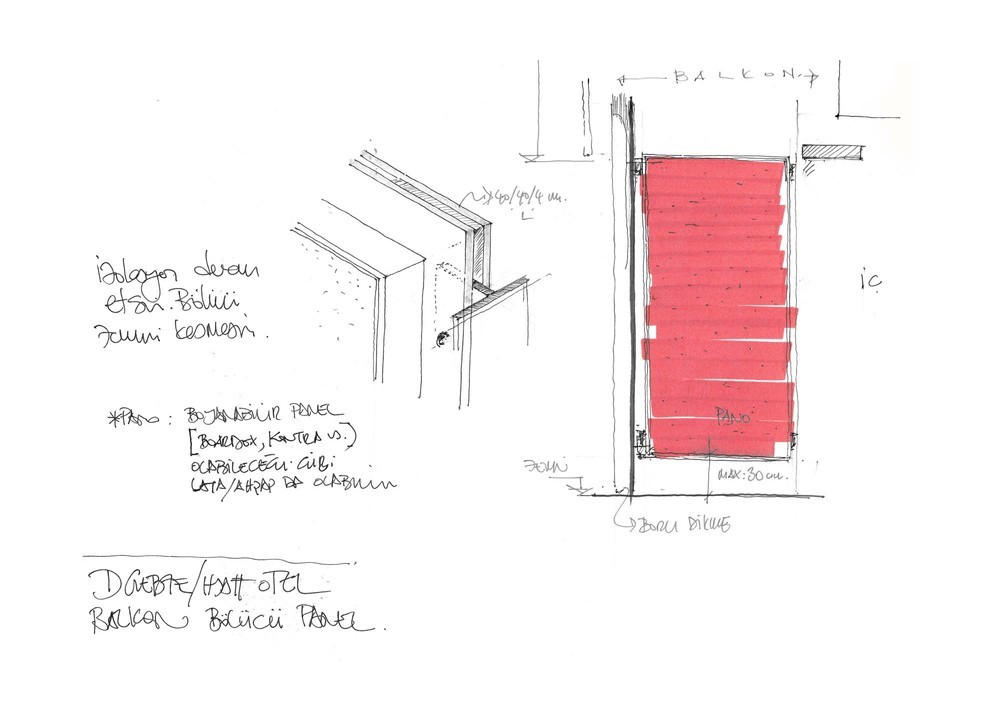 BALKON
40/40/4 cm.
L
İzolasyon devam
etsin. Bölücü
zemini kesmesin.
İÇ
*PANO: BOYANABİLİR PANEL
[BOARDEX, KONTRA VS.]
OLABİLECEĞİ GİBİ
LATA/AHŞAP DA OLABİLİR
PANO
MAX: 30 cm.
ZEMİN
BORU DİKME
GEBZE/HATT OTEL
BALKON BÖLÜCÜ PANEL.